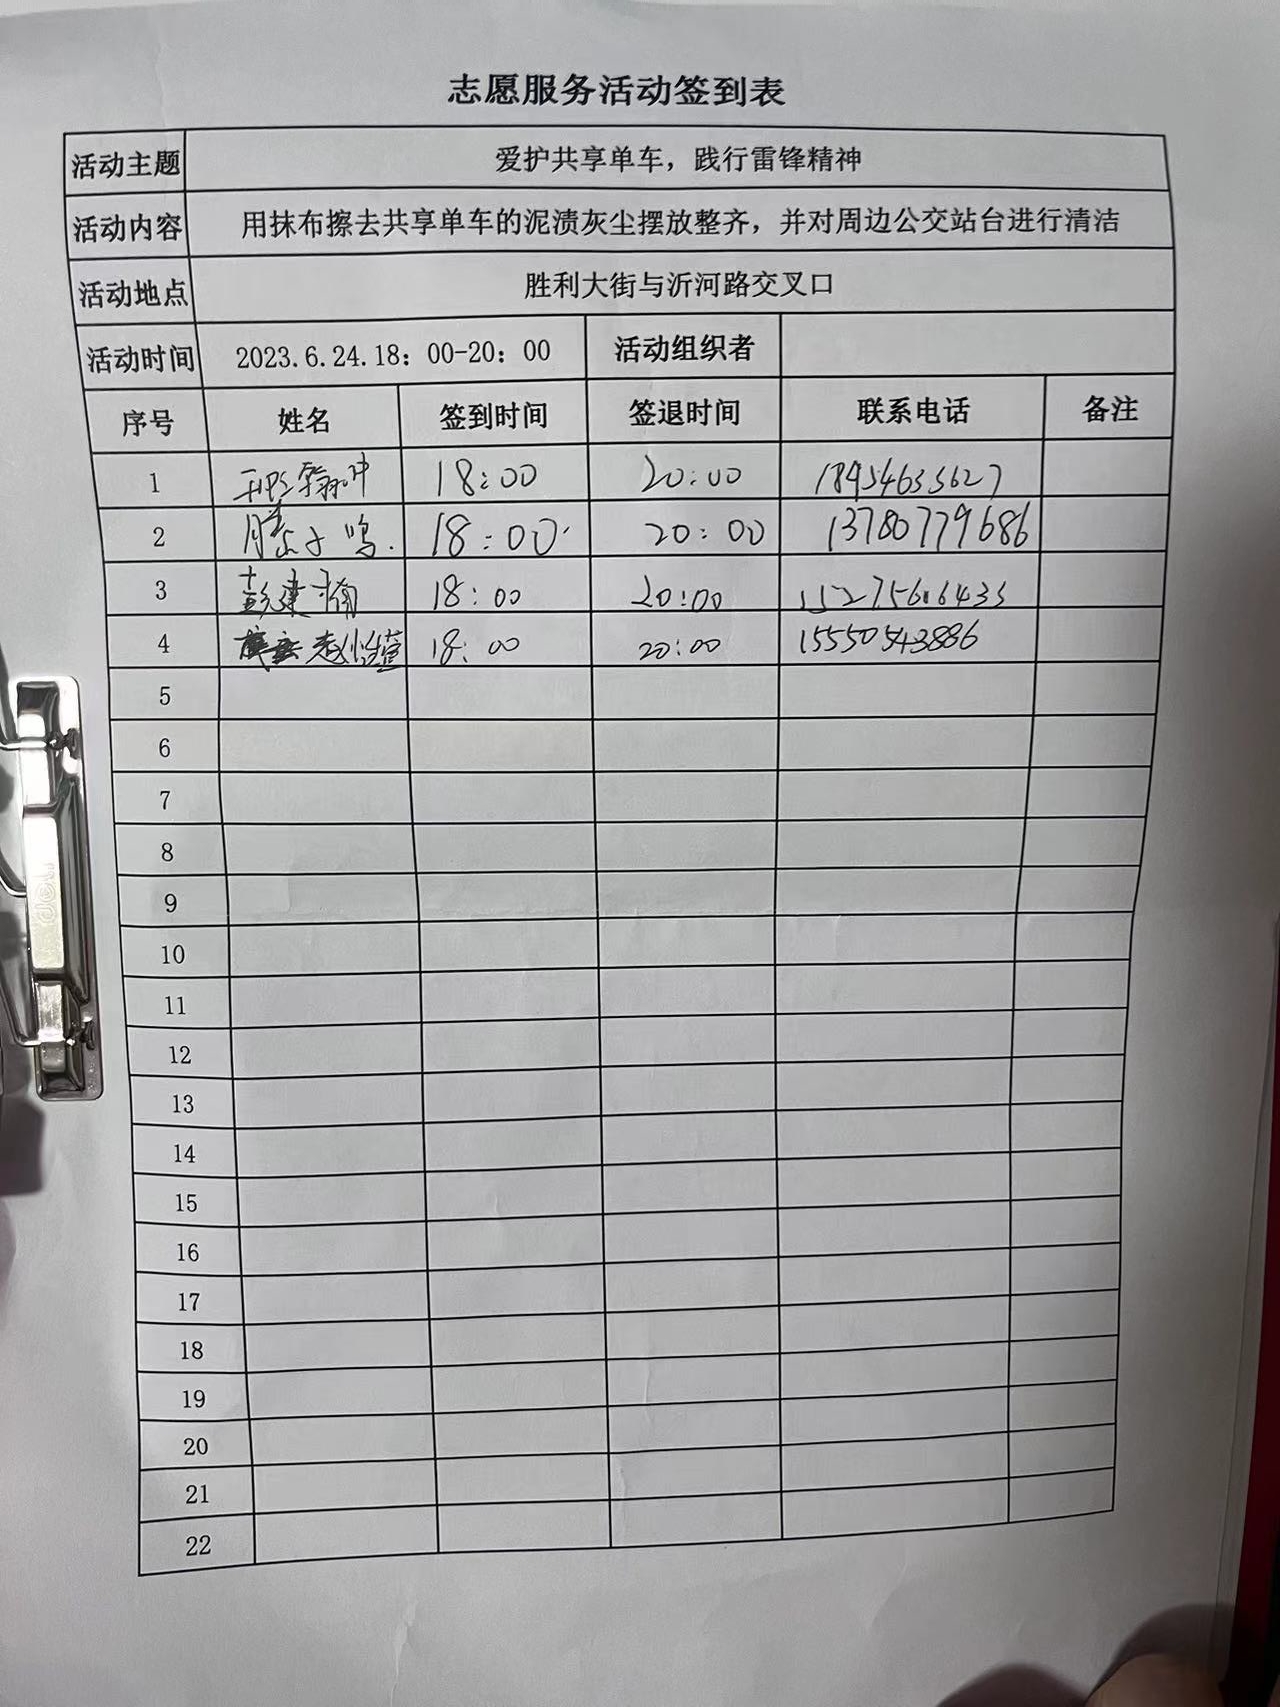 志愿服务活动签到表
活动主题 爱护共享单车，践行雷锋精神
活动内容 用抹布擦去共享单车的泥渍灰尘摆放整齐，并对周边公交站台进行清洁
活动地点 胜利大街与沂河路交叉口
活动时间 2023.6.24.18：00-20：00 活动组织者
序号 姓名 签到时间 签退时间 联系电话 备注
1 18:00 20:00
2 18:00 20:00 13780779686
3 18:00 20:00
4 18:00 20:00 15550543886
5
6
7
8
9
10
11
12
13
14
15
16
17
18
19
20
21
22
deli